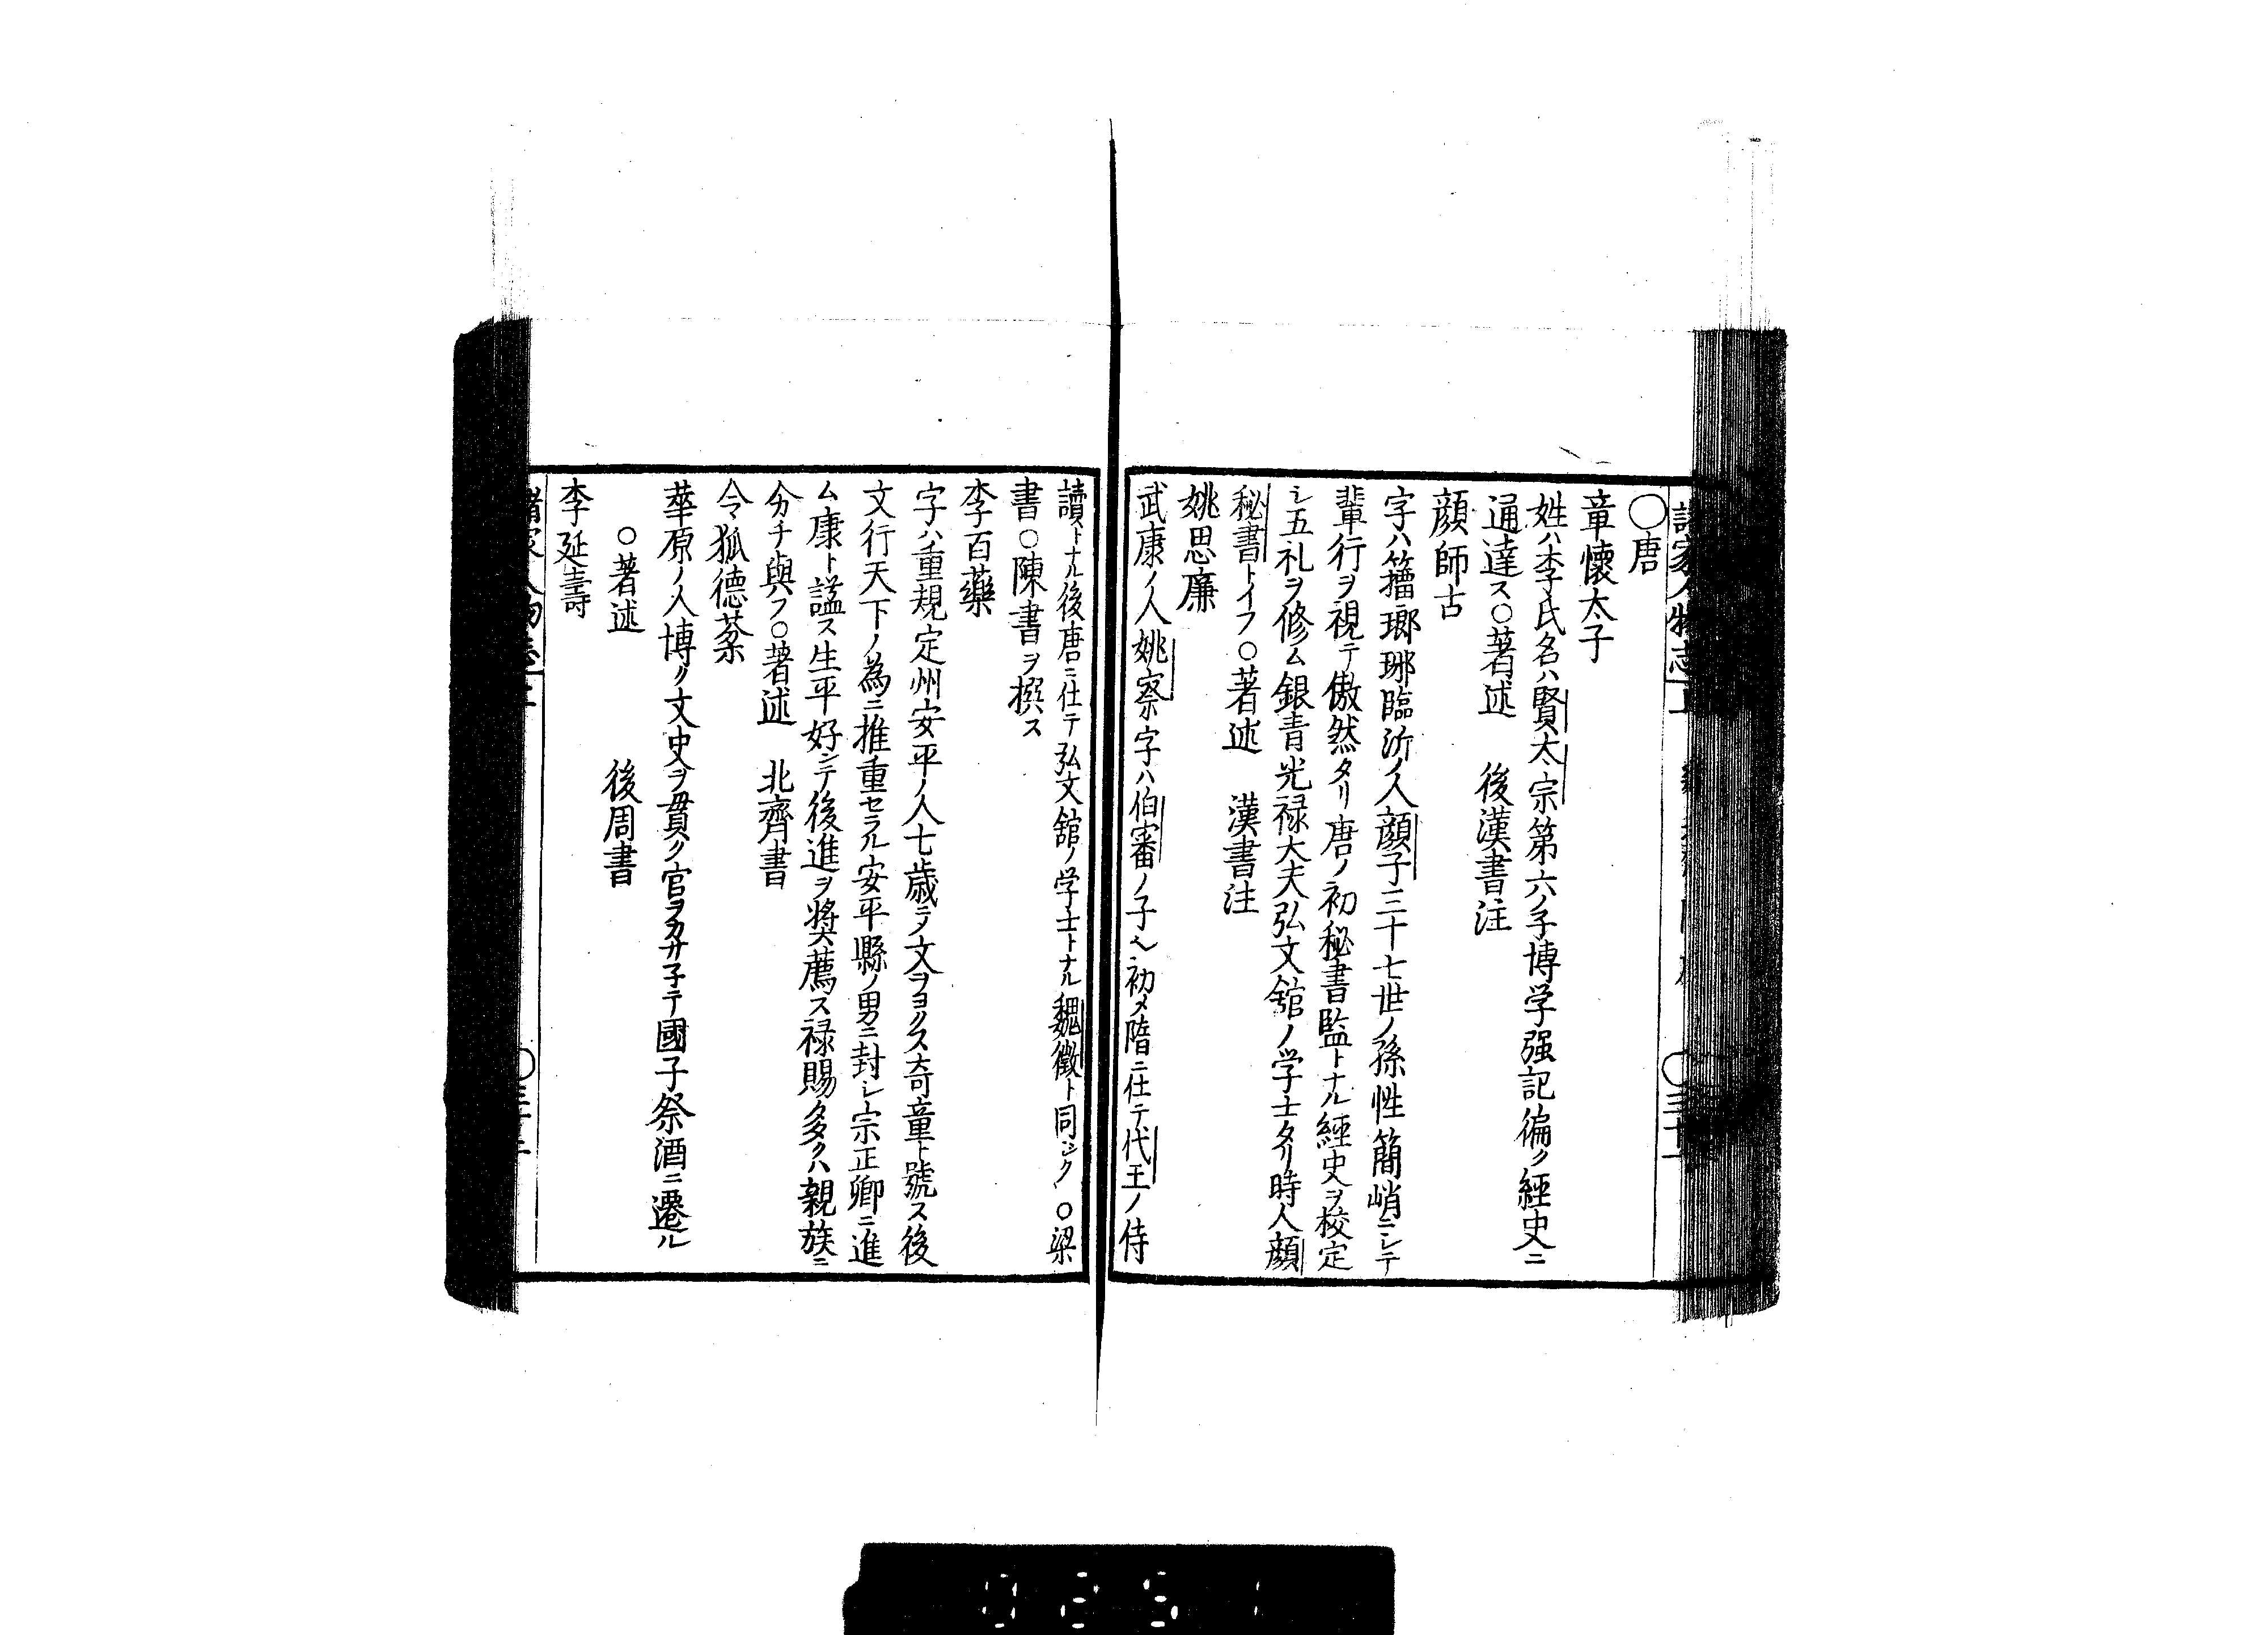 〇唐
章懷太子
姓ハ李氏名ハ賢太宗第六ノ子博学强記偏ク經史ニ
通達ス〇著述　後漢書注
顔師古
字ハ籀瑯琊臨沂ノ人顔子三十七世ノ孫性簡峭ニシテ
輩行ヲ視テ傲然タリ唐ノ初秘書監トナル經史ヲ校定
シ五礼ヲ修ム銀青光禄大夫弘文舘ノ学士タリ時人顔
秘書トイフ〇著述　漢書注
姚思廉
武康ノ人姚察字ハ伯審ノ子ヘ初メ隋ニ仕テ代王ノ侍
讀トナル後唐ニ仕テ弘文舘ノ学士トナル魏徵ト同シク〇梁
書〇陳書ヲ撰ス
李百藥
字ハ重規定州安平ノ人七歳ニテ文ヲヨクス奇童ト號ス後
文行天下ノ為ニ推重セラル安平縣ノ男ニ封シ宗正卿ニ進
ム康ト謚ス生平好ンテ後進ヲ奬薦ス禄賜多クハ親族ニ
分チ與フ〇著述　北齊書
令狐德棻
華原ノ人博ク文史ヲ貫ク官ヲカサ子テ國子祭酒ニ遷ル
〇著述　後周書
李延壽